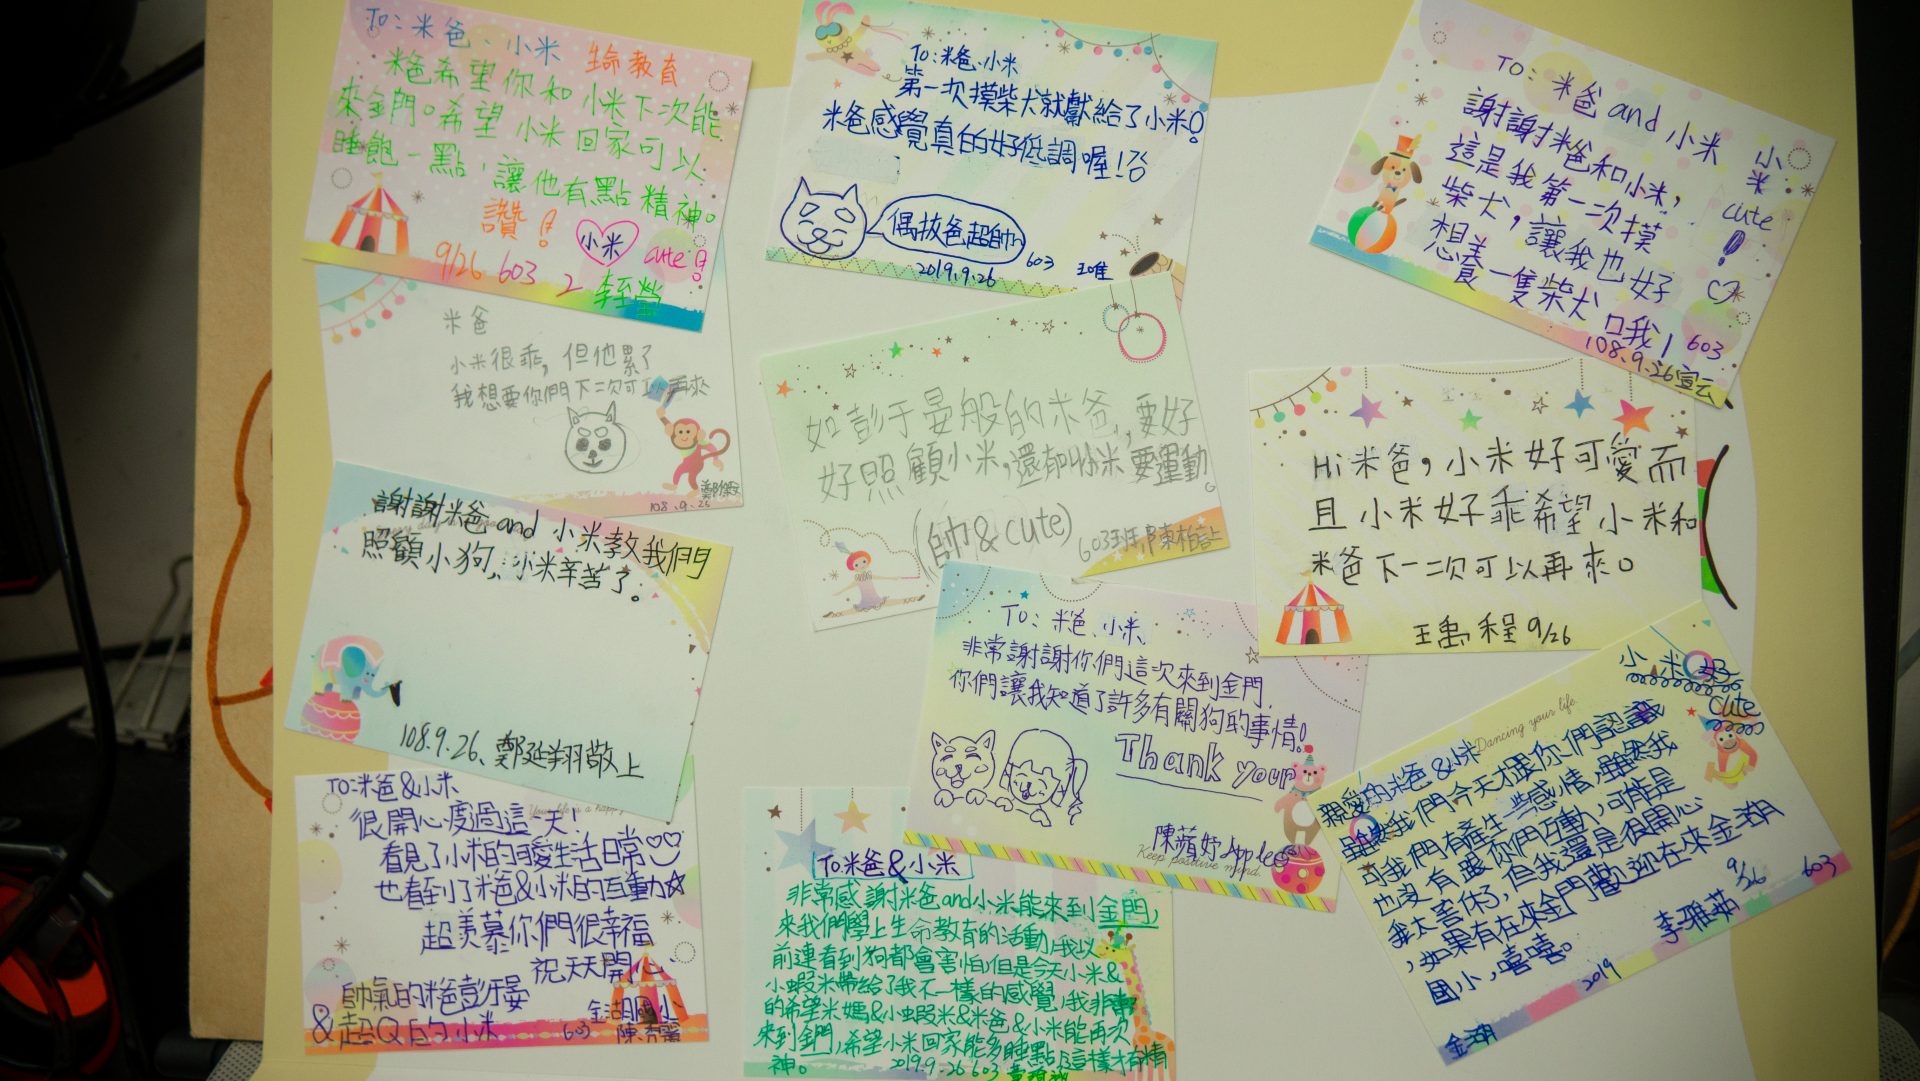 To:米爸、小米 生命教育
米爸希望你和小米下次能
來金門。希望小米回家可以
睡飽一點,讓他有點精神。
讚!
小米 cute!
9/26 603 2
To:米爸、小米
第一次摸柴犬就獻給了小米!
米爸感覺真的好低調喔!
偶拔爸超帥
2019.9.26 603
To:米爸 and 小米
謝謝米爸和小米,
這是我第一次摸
柴犬,讓我也好
想養一隻柴犬
小米
cute
!
108.9.26 603
米爸
小米很乖,但他累了
我想要你們下二次可以再來
108.9.26
如彭于晏般的米爸,要好
好照顧小米,還有叫小米要運動。
(帥&cute)
603班
Hi米爸,小米好可愛而
且小米好乖希望小米和
米爸下一次可以再來。
王禹程 9/26
謝謝米爸 and 小米教我們
照顧小狗,小米辛苦了。
108.9.26、鄭延翔敬上
To:米爸、小米
非常謝謝你們這次來到金門,
你們讓我知道了許多有關狗的事情!
Thank your
陳蘋妤Apple
Keep positive mind.
小米好
cute
Dancing your life.
親愛的米爸&小米
雖然我們今天才跟你們認識
可我們有產生一些感情,雖然我
也沒有跟你們互動,可能是
我太害休了,但我還是很開心
,如果有在來金門歡迎在來金湖
國小,嘻嘻。
2019 9/26 603
金湖
To:米爸&小米
很開心度過這一天!
看見了小米的可愛生活日常
也看到了米爸&小米的互動
超羨慕你們很幸福
祝天天開心
帥氣的米爸彭于晏
&超Q的小米
603 金湖國小
To米爸&小米
非常感謝米爸and小米能來到金門,
來我們學上生命教育的活動,我以
前連看到狗都會害怕,但是今天小米&
小蝦米帶給了我不一樣的感覺,我非常
的希望米媽&小蝦米&米爸&小米能再次
來到金門,希望小米回家能多睡點,這樣才有精
神。
2019.9.26 603